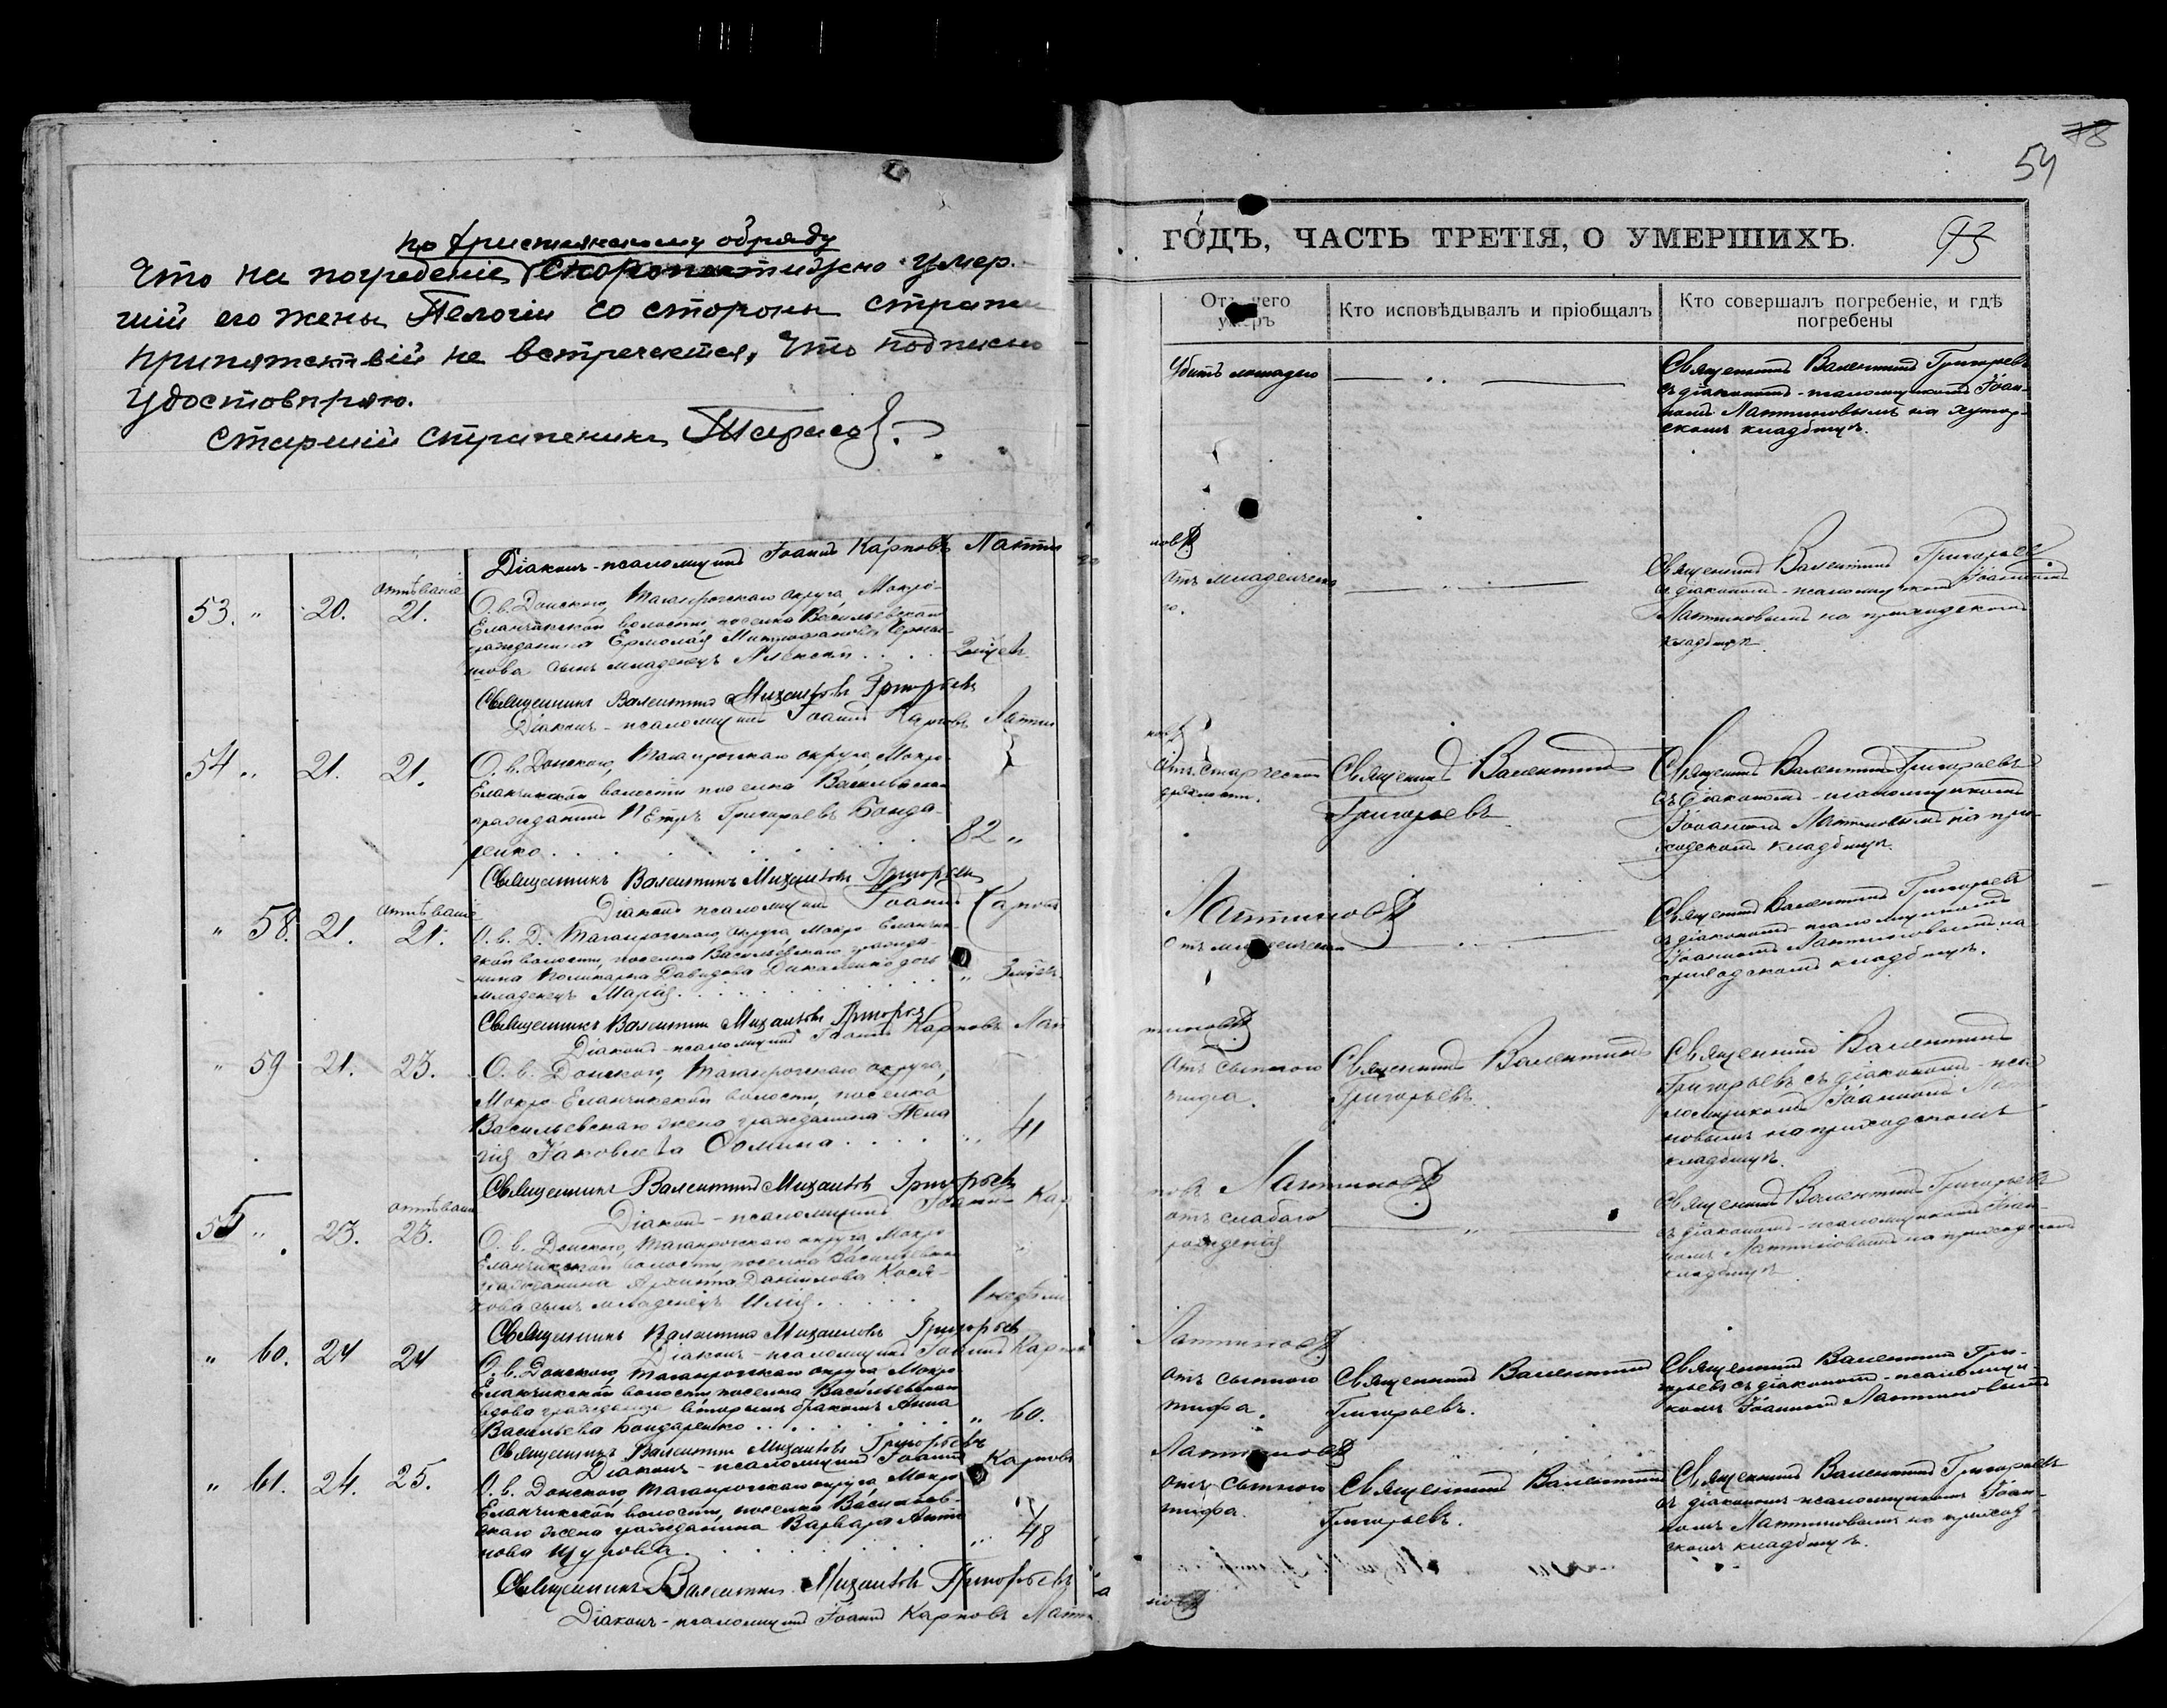 78
54
по христіянскому обряду
Что на погребеніе скоропостижно умер-
шій его жены Пелогіи со стороны стражи
припятствій не встречается, что подписью
удостовпряю.
Старшій стражникъ Тарасов
ГОДЪ, ЧАСТЬ ТРЕТІЯ, О УМЕРШИХЪ.
93
Отъ чего умеръ
Кто исповѣдывалъ и пріобщалъ
Кто совершалъ погребеніе, и гдѣ погребены
Убитъ лошадью
Священникъ Валентинъ Григорьевъ
съ діакономъ-псаломщикомъ Іоан-
номъ Лаптиновымъ на хутор-
скомъ кладбищѣ.
Діаконъ-псаломщикъ Іоаннъ Карповъ Лаптиновъ
53. " 20. отпѣваніе 21.
О. в. Донского, Таганрогскаго округа, Мокро-
Еланчикской волости, поселка Васильевскаго
гражданина Ермолая Митрофанова
сынъ младенецъ Алексѣй . . . .
Отъ младенческо
го.
Священникъ Валентинъ Григорьевъ
съ діакономъ-псаломщикомъ Іоанномъ
Лаптиновымъ на приходскомъ
кладбищѣ.
Священникъ Валентинъ Михаиловъ Григорьевъ
Діаконъ-псаломщикъ Іоаннъ Карповъ Лаптиновъ
54 " 21. 21.
О. в. Донского, Таганрогскаго округа, Мокро-
Еланчикской волости поселка Васильевскаго
гражданинъ Петръ Григорьевъ Бонда-
ренко . . . . . . . . 82 "
Отъ старческой
дряхлости.
Священникъ Валентинъ
Григорьевъ
Священникъ Валентинъ Григорьевъ
съ діакономъ-псаломщикомъ
Іоанномъ Лаптиновымъ на при-
ходскомъ кладбищѣ.
Священникъ Валентинъ Михаиловъ Григорьевъ
Діаконъ псаломщикъ Іоаннъ Карповъ Лаптиновъ
" 58. 21. отпѣваніе 21.
О. в. Д. Таганрогскаго округа Мокро-Еланчик-
ской волости, поселка Васильевскаго гражда-
нина Поликарпа Давидова дочь
младенецъ Марія . . . . . . "
Отъ младенческаго
Священникъ Валентинъ Григорьевъ
съ діакономъ-псаломщикомъ
Іоанномъ Лаптиновымъ на
приходскомъ кладбищѣ.
Священникъ Валентинъ Михаиловъ Григорьевъ
Діаконъ-псаломщикъ Іоаннъ Карповъ Лаптиновъ
" 59 21. 23.
О. в. Донского, Таганрогскаго округа,
Мокро-Еланчикской волости, поселка
Васильевскаго жена гражданина Пела
гія Іаковлева Фомина . . . . " 41
Отъ сыпного
тифа.
Священникъ Валентинъ
Григорьевъ.
Священникъ Валентинъ
Григорьевъ съ діакономъ-пса
ломщикомъ Іоанномъ Лапти
новымъ на приходскомъ
кладбищѣ.
Священникъ Валентинъ Михаиловъ Григорьевъ
Діаконъ-псаломщикъ Іоаннъ Карповъ Лаптиновъ
55 " 23. отпѣваніе 23.
О. в. Донского, Таганрогскаго округа, Мокро
Еланчикской волости, поселка Васильевскаго
гражданина Даніилова Кося-
кова сынъ младенецъ Илія . . . . . 1 недѣли
отъ слабаго
рожденія
Священникъ Валентинъ Григорьевъ
съ діакономъ-псаломщикомъ Іоан-
номъ Лаптиновымъ на приходскомъ
кладбищѣ
Священникъ Валентинъ Михаиловъ Григорьевъ
Діаконъ-псаломщикъ Іоаннъ Карповъ Лаптиновъ
" 60. 24 24
О. в. Донского, Таганрогскаго округа Мокро
Еланчикской волости, поселка Васильевскаго
вдова гражданина вторымъ бракомъ Анна
Васильева Бондаренко . . . . " 60.
отъ сыпного
тифа.
Священникъ Валентинъ
Григорьевъ.
Священникъ Валентинъ Гри-
горьевъ съ діакономъ-псаломщи-
комъ Іоанномъ Лаптиновымъ
Священникъ Валентинъ Михаиловъ Григорьевъ
Діаконъ-псаломщикъ Іоаннъ Карповъ Лаптиновъ
" 61. 24. 25.
О. в. Донского, Таганрогскаго округа, Мокро
Еланчикской волости, поселка Васильев-
скаго жена гражданина Варвара Анти
пова Щурова . . . . . . . " 48
отъ сыпного
тифа.
Священникъ Валентинъ
Григорьевъ.
Священникъ Валентинъ Григорьевъ
съ діакономъ-псаломщикомъ Іоан-
номъ Лаптиновымъ на приход-
скомъ кладбищѣ.
Священникъ Валентинъ Михаиловъ Григорьевъ
Діаконъ-псаломщикъ Іоаннъ Карповъ Лаптиновъ